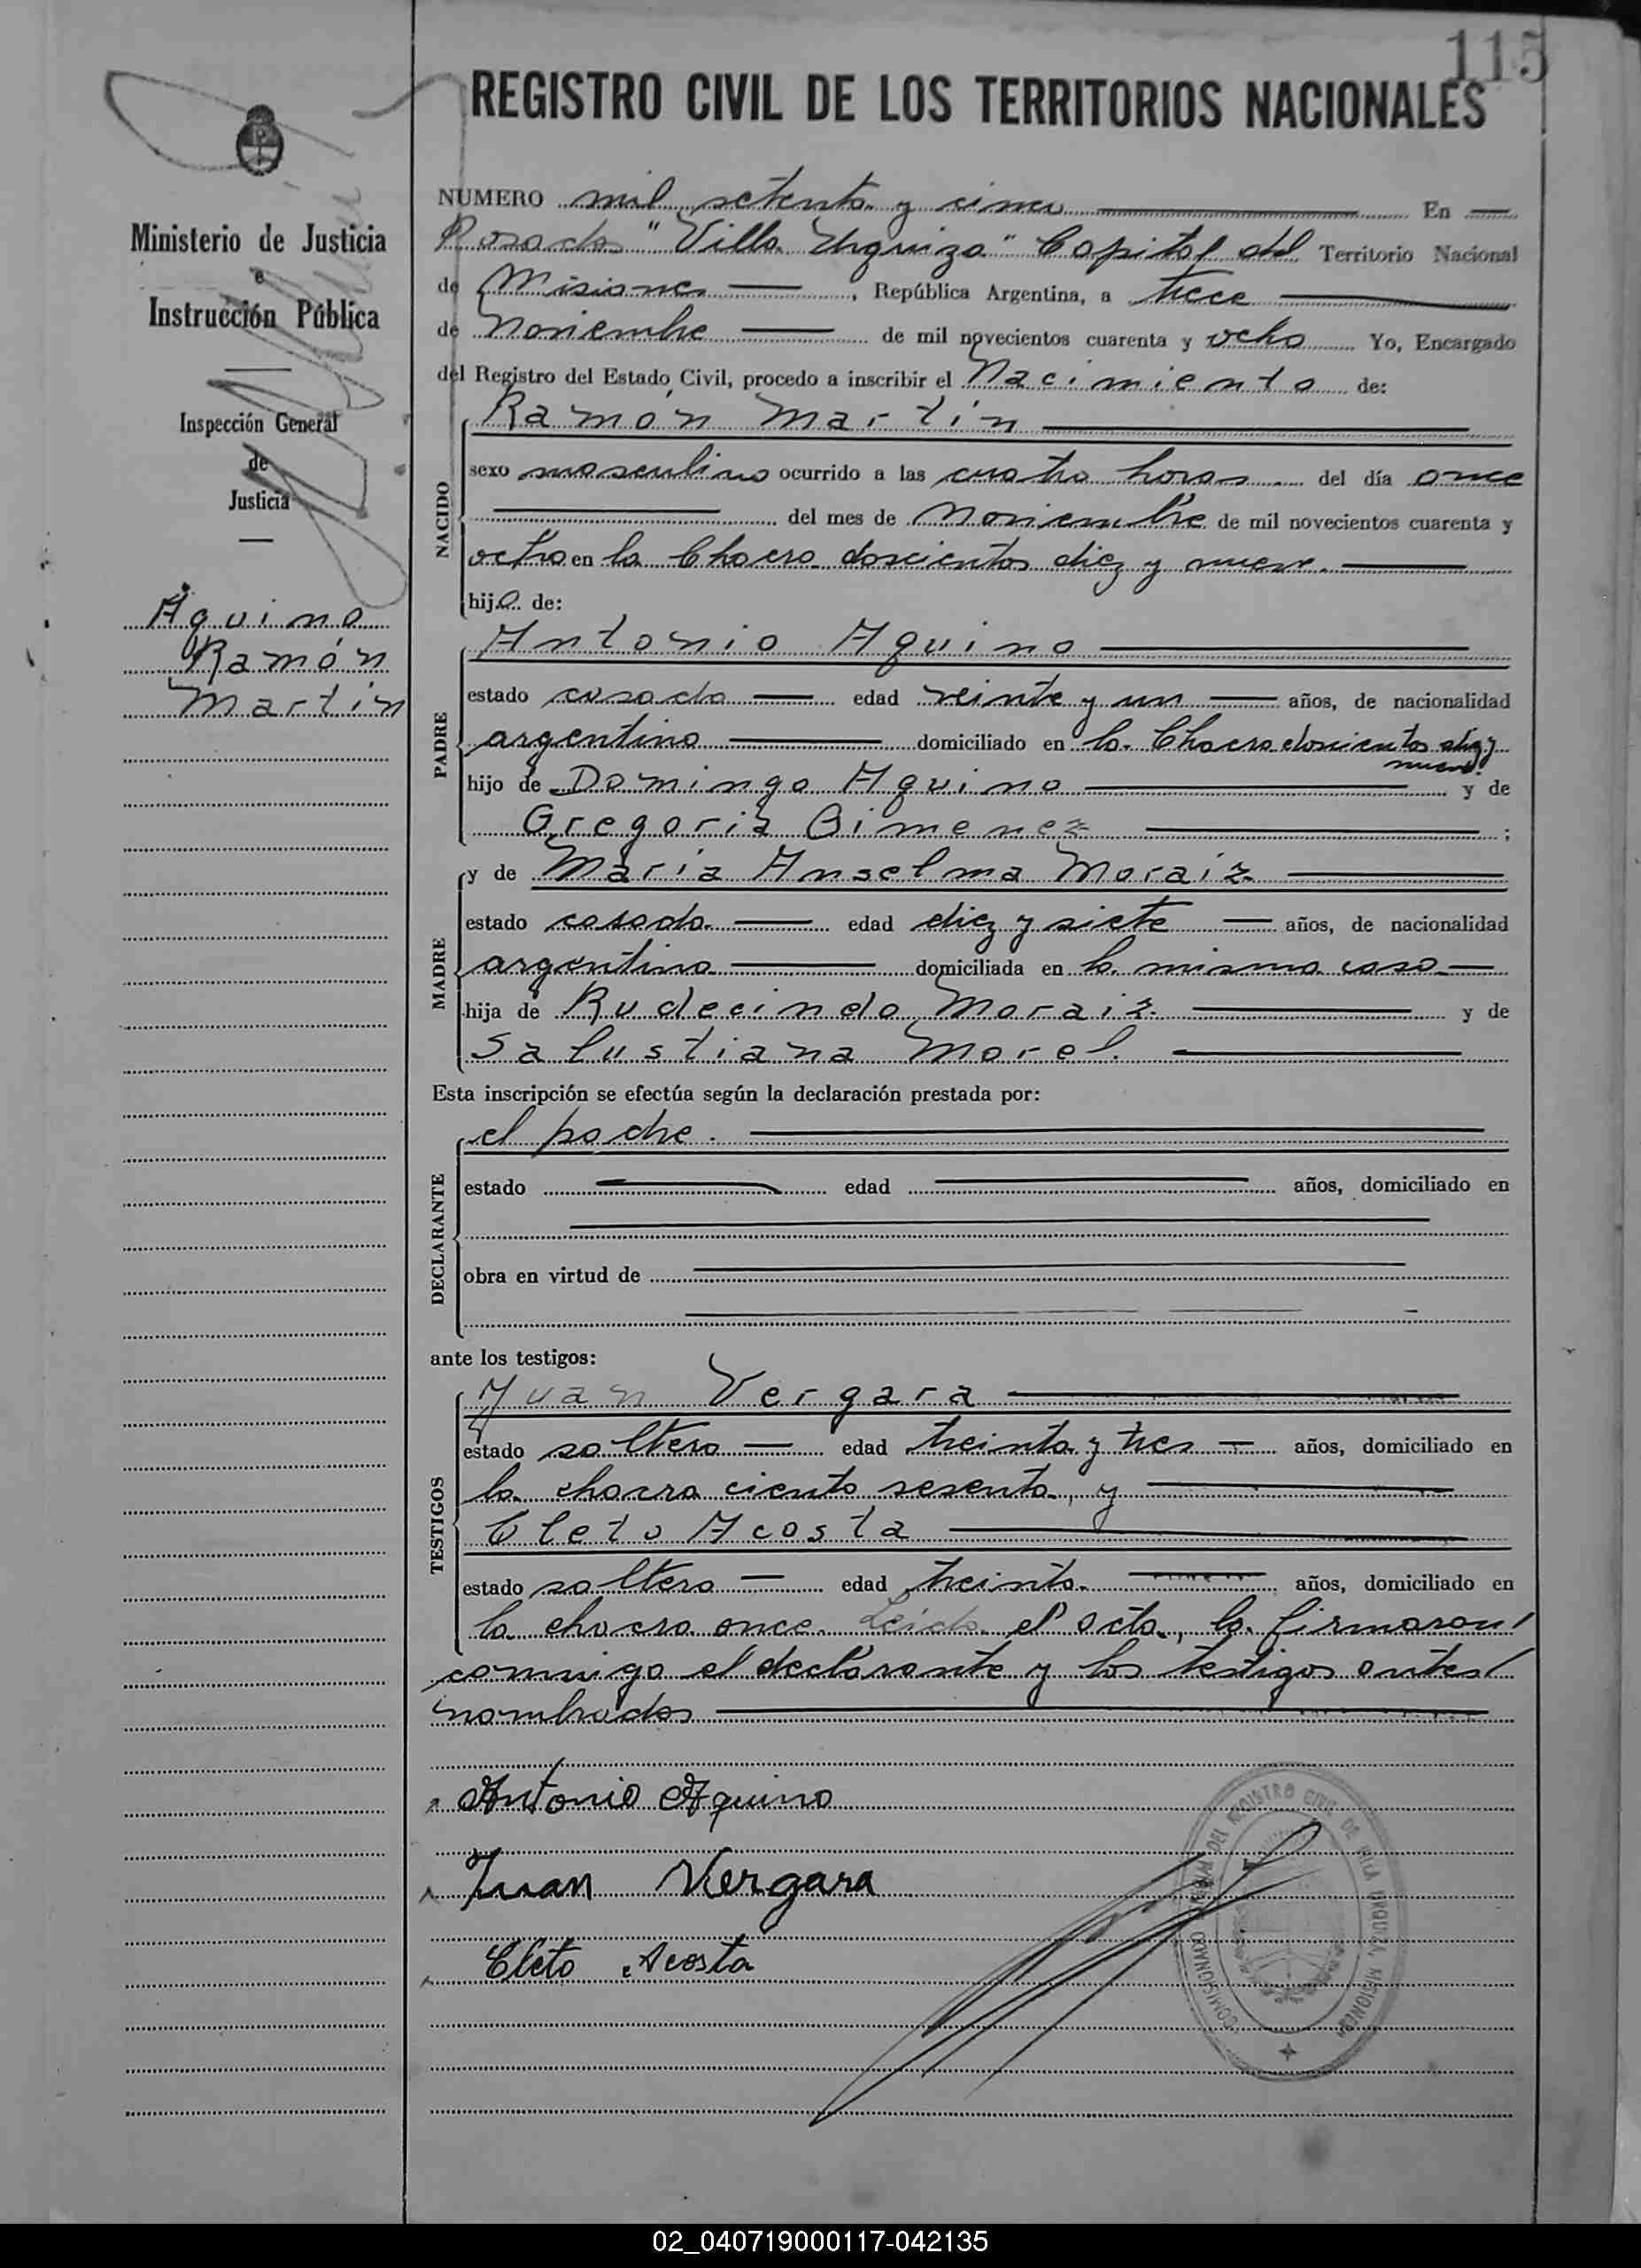 115
REGISTRO CIVIL DE LOS TERRITORIOS NACIONALES
Ministerio de Justicia
e
Instrucción Pública
Inspección General
de
Justicia
Aquino
Ramón
Martín
NUMERO mil setenta y cinco En
Posadas "Villa Urquiza" Capital del Territorio Nacional
de Misiones, República Argentina, a trece
de Noviembre de mil novecientos cuarenta y ocho Yo, Encargado
del Registro del Estado Civil, procedo a inscribir el Nacimiento de:
NACIDO
Ramón Martín
sexo masculino ocurrido a las cuatro horas del día once
del mes de Noviembre de mil novecientos cuarenta y
ocho en la Chacra doscientos diez y nueve.
hijo de:
PADRE
Antonio Aquino
estado casado edad veinte y un años, de nacionalidad
argentina domiciliado en la Chacra doscientos diez y
nueve.
hijo de Domingo Aquino y de
Gregoria Gimenez ;
MADRE
y de María Anselma Moraiz
estado casada edad diez y siete años, de nacionalidad
argentina domiciliada en la misma casa
hija de Rudecindo Moraiz y de
Salustiana Morel.
Esta inscripción se efectúa según la declaración prestada por:
DECLARANTE
el padre.
estado edad años, domiciliado en
obra en virtud de
ante los testigos:
TESTIGOS
Juan Vergara
estado soltero edad treinta y tres años, domiciliado en
la chacra ciento sesenta, y
Cleto Acosta
estado soltero edad treinta años, domiciliado en
la chacra once. Leída el acta, la firmaron
conmigo el declarante y los testigos antes
nombrados
Antonio Aquino
Juan Vergara
Cleto Acosta
DEL REGISTRO CIVIL DE VILLA URQUIZA, MISIONES
COMISIONADO
02_040719000117-042135